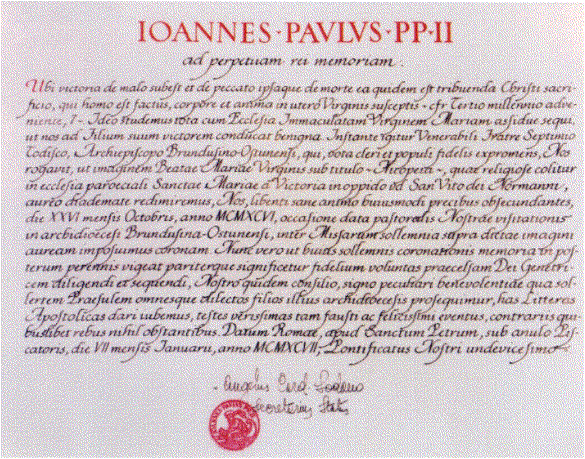 IOANNES · PAVLVS · PP · II
ad perpetuam rei memoriam.
Ubi victoria de malo subest et de peccato ipsaque de morte ea quidem est tribuenda Christi sacri-
ficio, qui homo est factus, corpore et anima in utero Virginis susceptis - cfr Tertio millennio adve-
niente, 7 - Ideo studemus tota cum Ecclesia Immaculatam Virginem Mariam assidue sequi,
ut nos ad Filium suum victorem conducat benigna. Instante igitur Venerabili Fratre Septimio
Todisco, Archiepiscopo Brundusino-Ostunensi, qui, vota cleri et populi fidelis expromens, Nos
rogavit, ut imaginem Beatae Mariae Virginis sub titulo, quae religiose colitur
in ecclesia paroeciali Sanctae Mariae a Victoria in oppido vd San Vito dei Normanni,
aureo diademate redimiremus, Nos, libenti sane animo huiusmodi precibus obsecundantes,
die XXVI mensis Octobris, anno MCMXCVI, occasione data pastoralis Nostrae visitationis
in archidioecesi Brundusina-Ostunensi, inter Missarum sollemnia supra dictae imagini
auream imposuimus coronam. Nunc vero ut huius sollemnis coronationis memoria in pos-
terum perennis vigeat pariterque significetur fidelium voluntas praecelsam Dei Genetri-
cem diligendi et sequendi, Nostro quidem consilio, signo peculiari benevolentiae qua sol-
lertem Praesulem omnesque dilectos filios illius archidioecesis prosequimur, has Litteras
Apostolicas dari iubemus, testes verissimas tam fausti ac felicissimi eventus, contrariis qui-
buslibet rebus nihil obstantibus. Datum Romae, apud Sanctum Petrum, sub anulo Pis-
catoris, die VII mensis Ianuarii, anno MCMXCVII, Pontificatus Nostri undevicesimo.
Angelus Card. Sodano
Secretarius Status